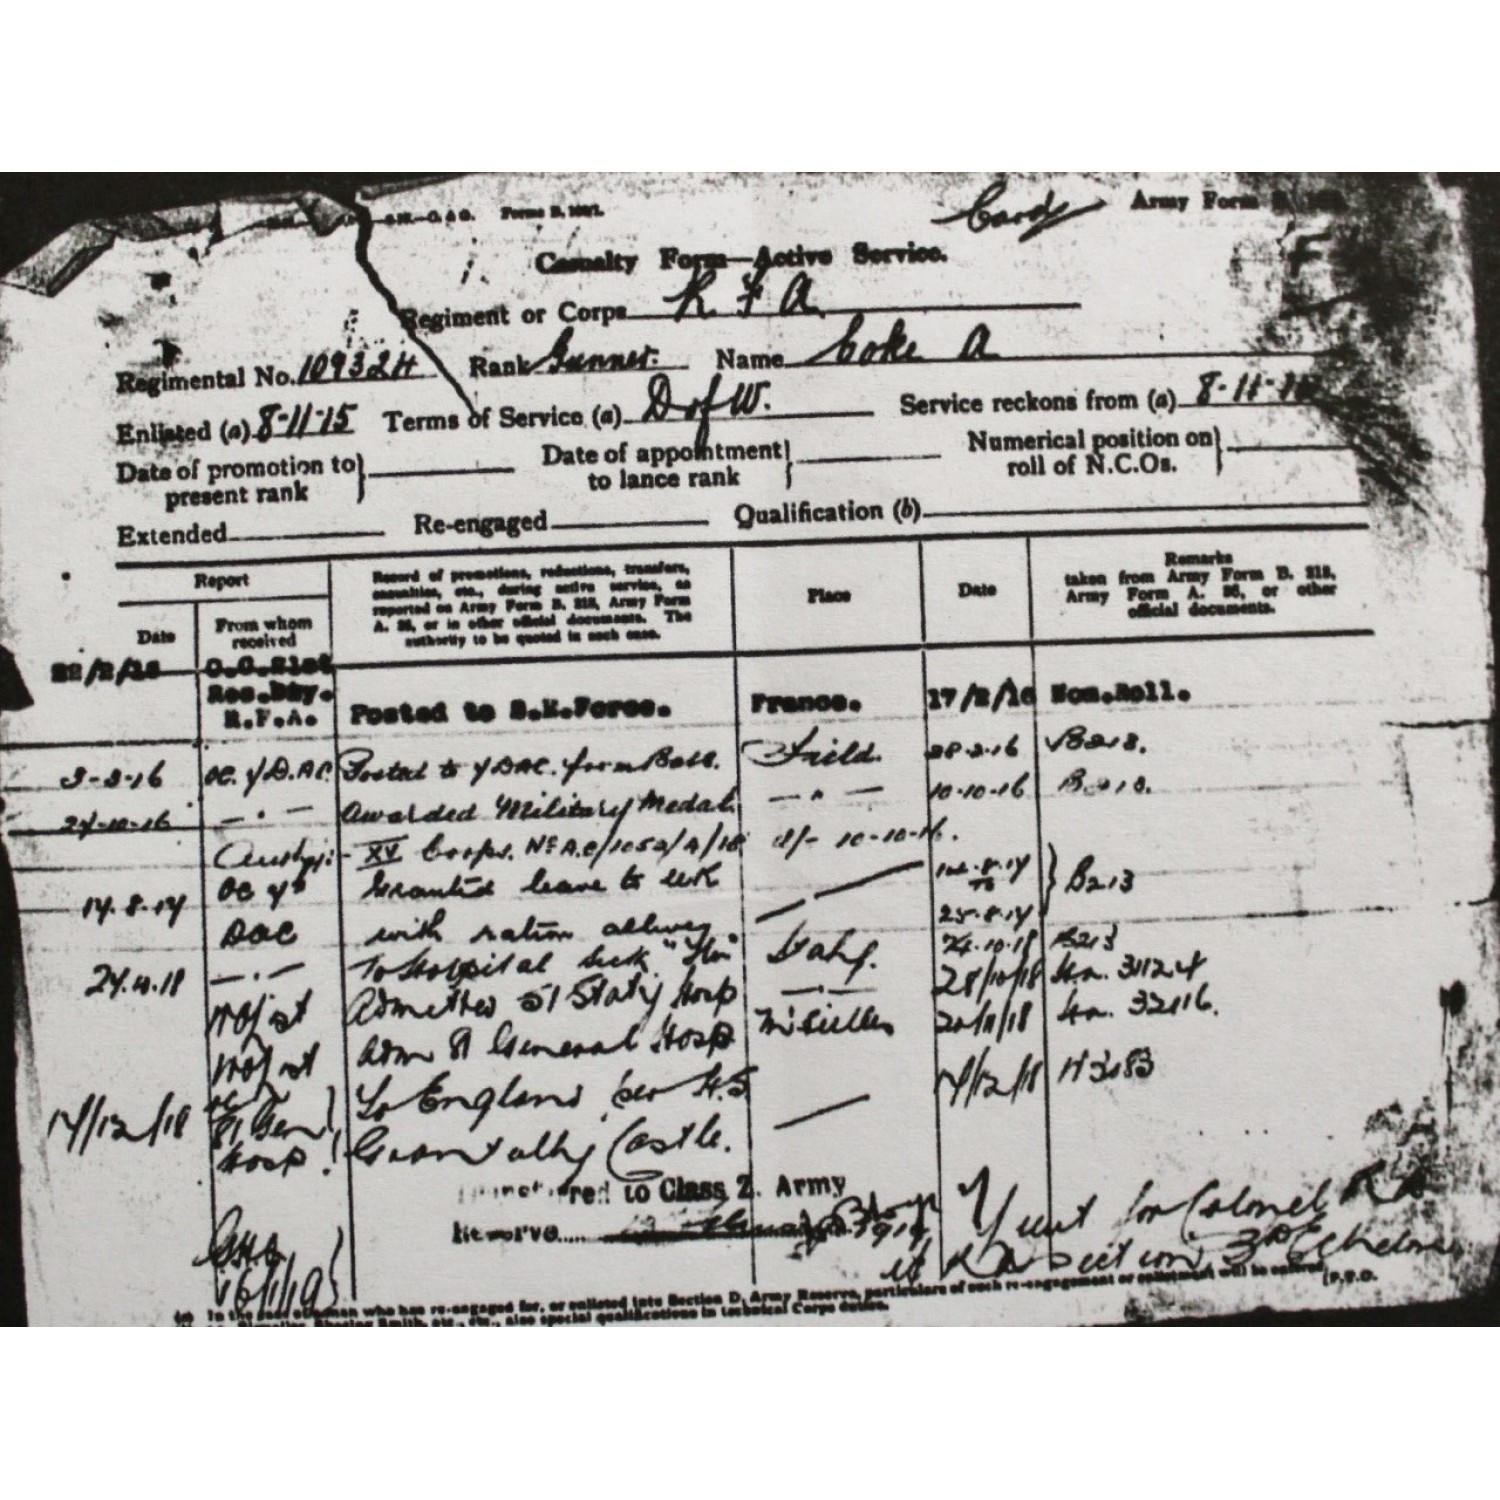 Forms B. 103/1.
Cards
Army Form B. 103.
Casualty Form—Active Service.
Regiment or Corps R F A
Regimental No. 109324 Rank Gunner. Name Coke A
Enlisted (a) 8-11-15 Terms of Service (a) D of W. Service reckons from (a) 8-11-15
Date of promotion to present rank Date of appointment to lance rank Numerical position on roll of N.C.Os.
Extended Re-engaged Qualification (b)
Report
Date
From whom received
Record of promotions, reductions, transfers, casualties, etc., during active service, as reported on Army Form B. 213, Army Form A. 36, or in other official documents. The authority to be quoted in each case.
Place
Date
Remarks taken from Army Form B. 213, Army Form A. 36, or other official documents.
22/2/16 O.C.21st
Res.Bty.
R.F.A. Posted to B.E.Force. France. 17/2/16 Nom.Roll.
3-3-16 OC. 7 D.A.C. Posted to 7 DAC. from Base. Field. 28-2-16 B213.
24-10-16 — " — Awarded Military Medal. — " — 10-10-16 B213.
Auth XV Corps. No A.C/1052/A/18 d/- 10-10-16.
14.8.17 OC 7th Granted leave to UK — 14.8.17 to } B213
DAC with ration 25.8.17
24.10.18 — " — To Hospital Sick 24.10.18 B213
Admitted 51 Staty Hosp — " — 28/10/18 31124
Adm 81 General Hosp 20/11/18 32116.
17/12/18 81 Gen To England per H.S 17/12/18 H3183
Hosp Grantully Castle. —
Transferred to Class Z. Army
Reserve 1919
16/1/19 Lieut for Colonel RA
RA Section 3rd Echelon
(a) In the case of a man who has re-engaged for, or enlisted into Section D, Army Reserve, particulars of such re-engagement or enlistment will be entered.
Shoeing Smith, etc., etc., also special qualifications in technical Corps duties. (P.T.O.